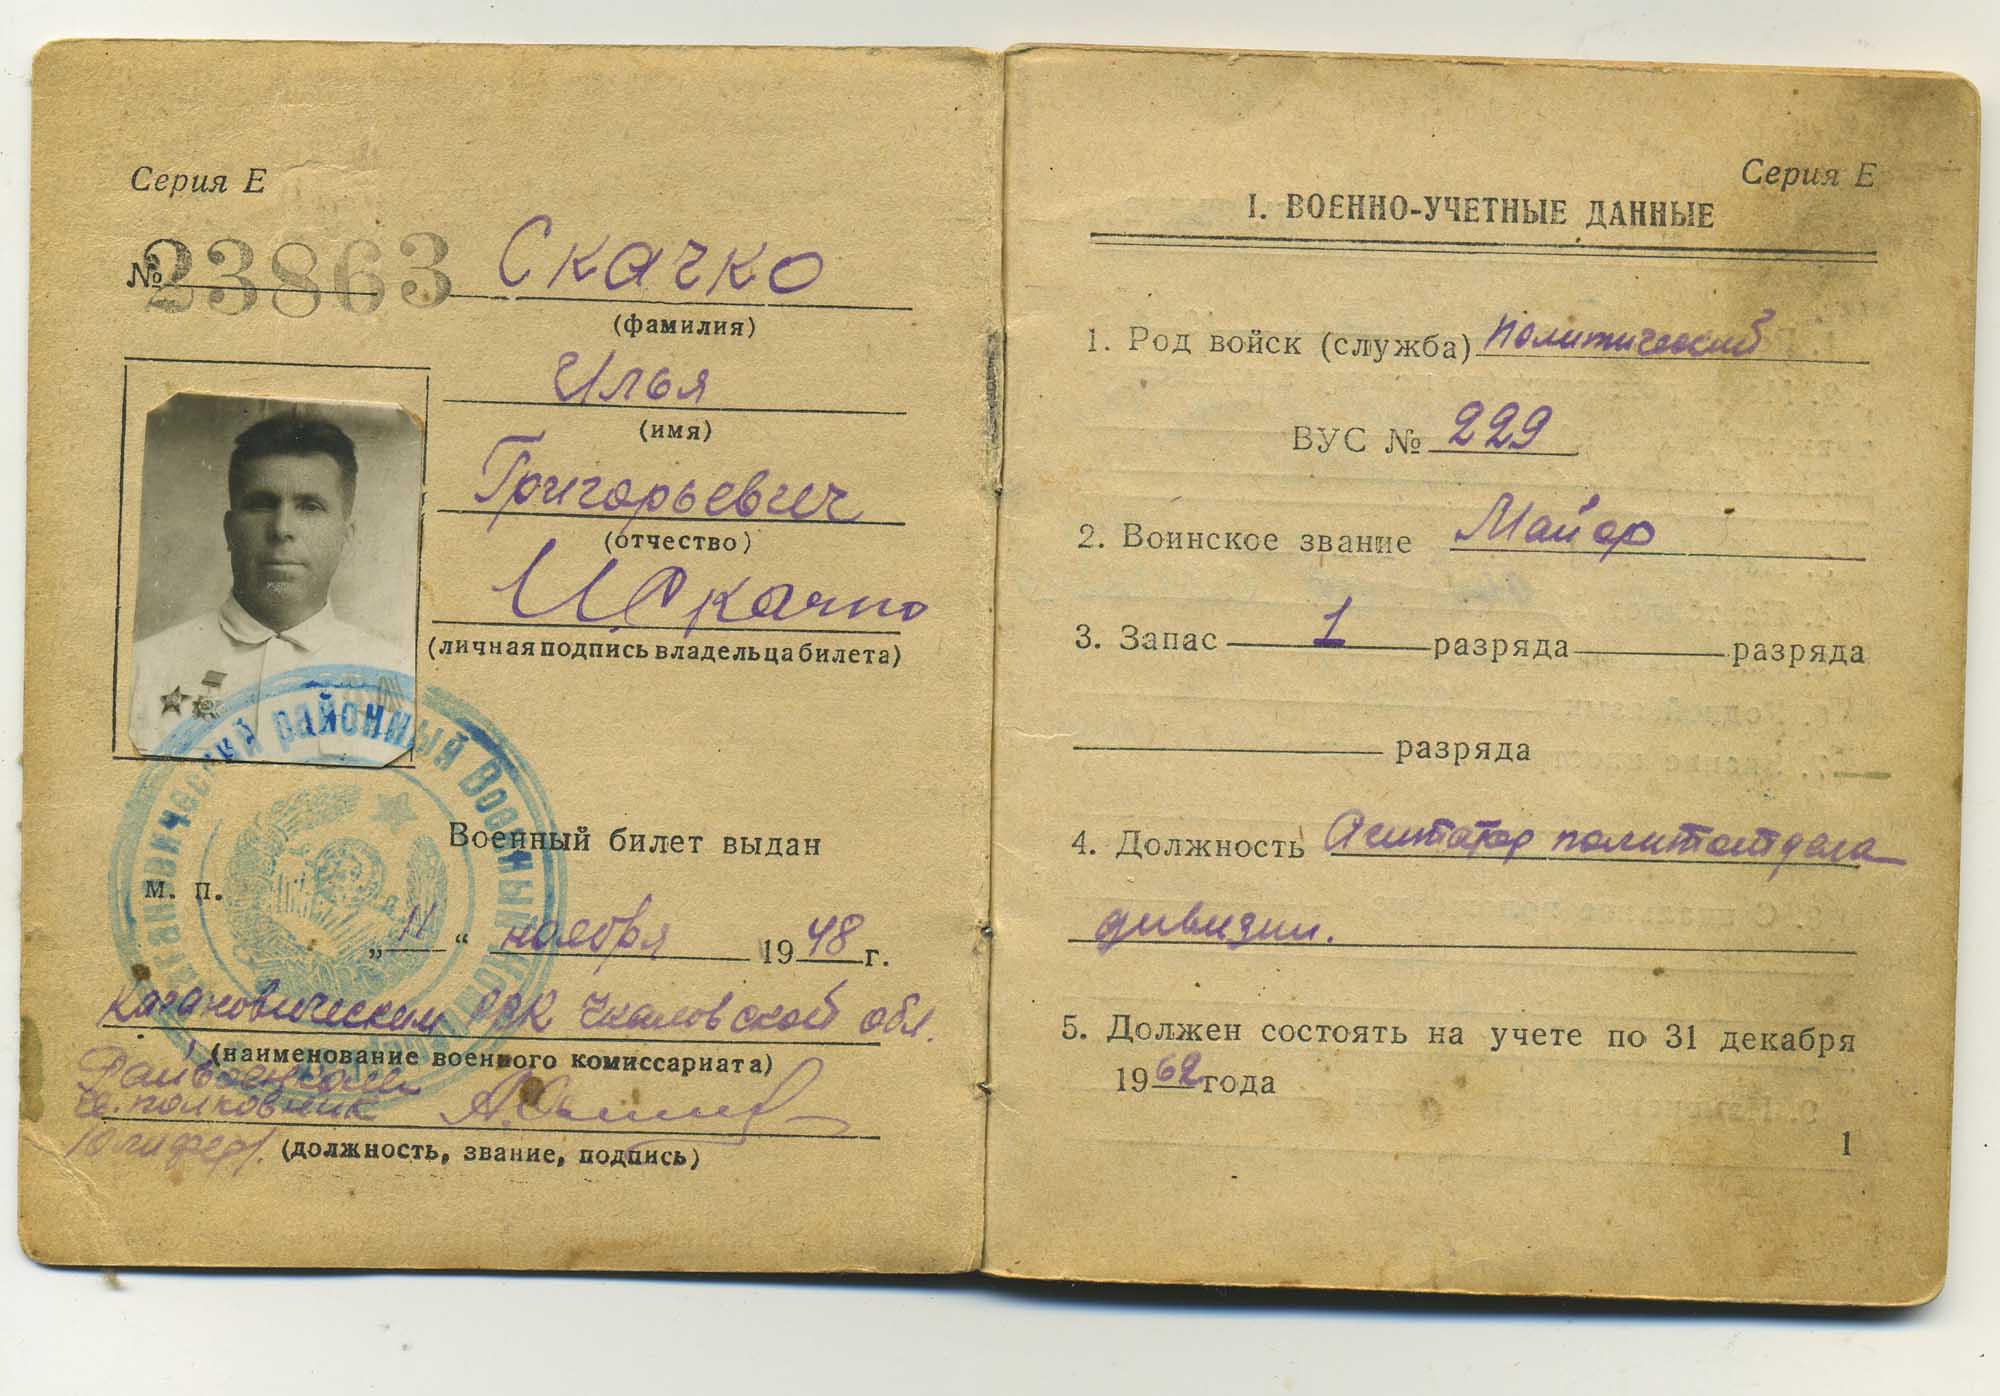 Серия Е
№ 23863 Скачко
(фамилия)
Илья
(имя)
Григорьевич
(отчество)
И Скачко
(личная подпись владельца билета)
Кагановический районный Военный
Военный билет выдан
М. П.
„11“ ноября 1948 г.
Кагановическим РВК Чкаловской обл.
(наименование военного комиссариата)
Райвоенком
полковник
(должность, звание, подпись)
Серия Е
I. ВОЕННО-УЧЕТНЫЕ ДАННЫЕ
1. Род войск (служба) политический
ВУС № 229
2. Воинское звание Майор
3. Запас 1 разряда разряда
разряда
4. Должность Агитатор политотдела
дивизии.
5. Должен состоять на учете по 31 декабря
1962 года
1